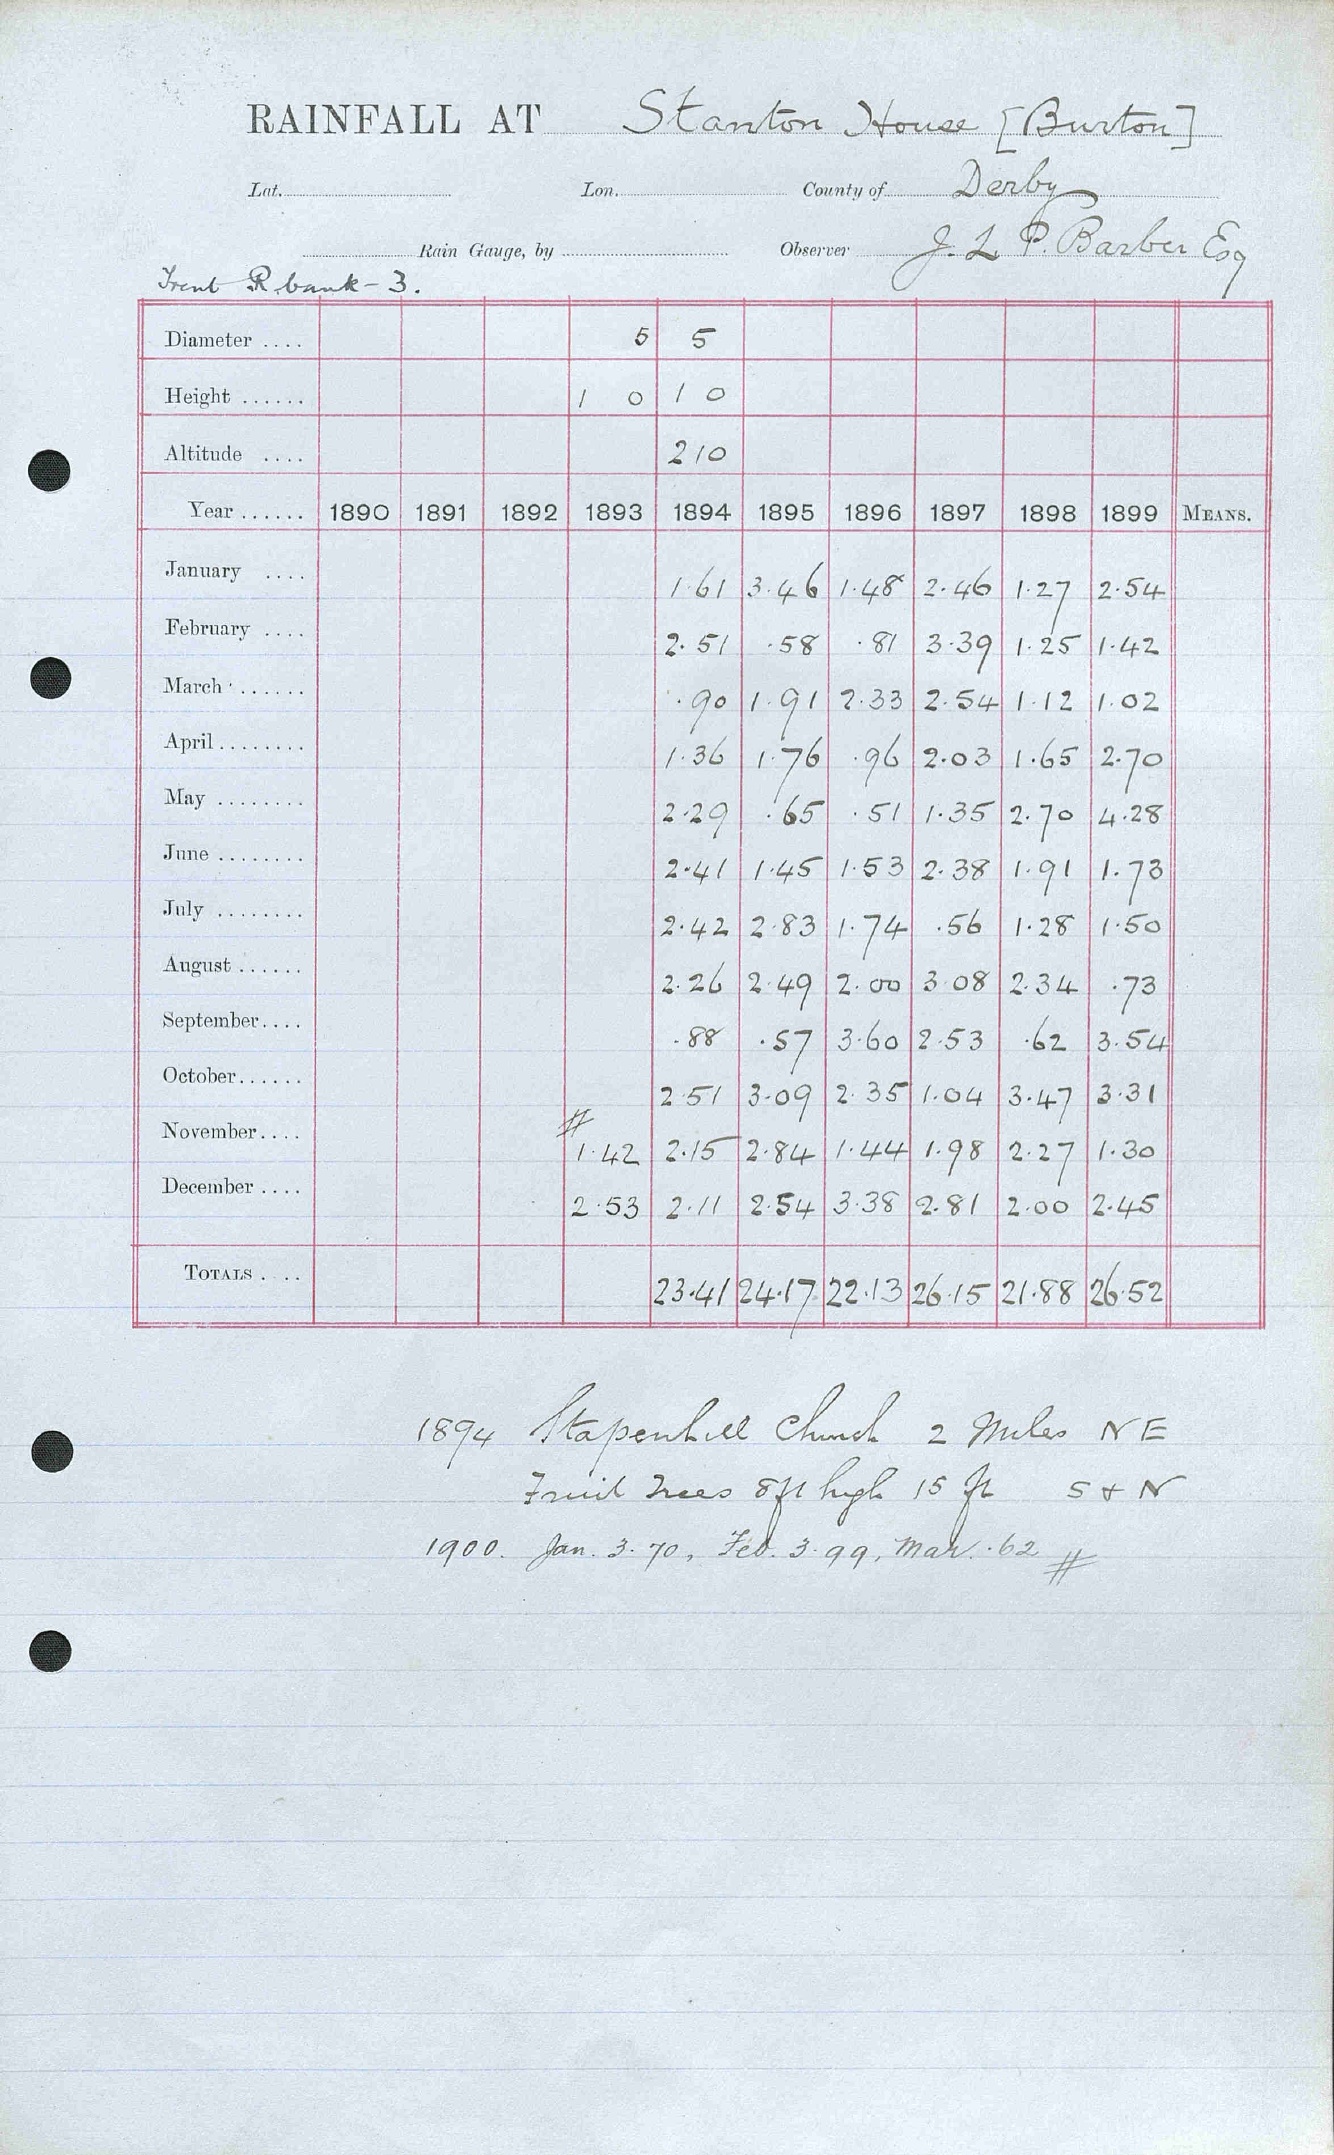 RAINFALL AT Stanton House [Burton]
Lat. Lon. County of Derby
Rain Gauge, by Observer J. L. P. Barber Esq
Trent R. bank - 3.
Diameter .... 5 5
Height ...... 1 0 1 0
Altitude .... 210
Year ...... 1890 1891 1892 1893 1894 1895 1896 1897 1898 1899 MEANS.
January .... 1.61 3.46 1.48 2.46 1.27 2.54
February .... 2.51 .58 .81 3.39 1.25 1.42
March ...... .90 1.91 2.33 2.54 1.12 1.02
April ........ 1.36 1.76 .96 2.03 1.65 2.70
May ........ 2.29 .65 .51 1.35 2.70 4.28
June ........ 2.41 1.45 1.53 2.38 1.91 1.73
July ........ 2.42 2.83 1.74 .56 1.28 1.50
August ...... 2.26 2.49 2.00 3.08 2.34 .73
September.... .88 .57 3.60 2.53 .62 3.54
October...... 2.51 3.09 2.35 1.04 3.47 3.31
November.... # 1.42 2.15 2.84 1.44 1.98 2.27 1.30
December .... 2.53 2.11 2.54 3.38 2.81 2.00 2.45
TOTALS .... 23.41 24.17 22.13 26.15 21.88 26.52
1894 Stapenhill Church 2 Miles NE
Fruit Trees 8ft high 15 ft S & N
1900. Jan. 3.70, Feb. 3.99, Mar. .62 #